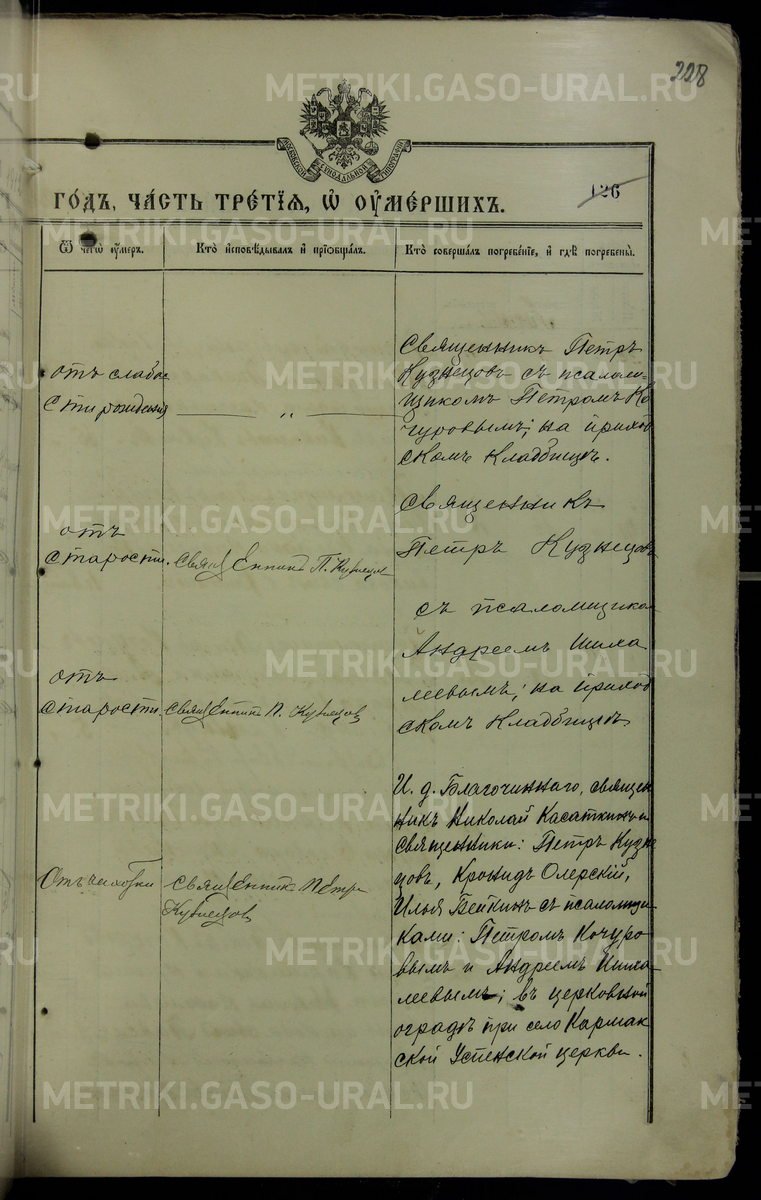 228
МОСКОВСКОЙ СѴНОДАЛЬНОЙ ТИПОГРАФІИ
126
ГО́ДЪ, ЧА́СТЬ ТРЕ́ТІѦ, Ѡ҆ ОУ҆МЕ́РШИХЪ.
Ѿ чегѡ̀ оу҆́меръ.
Кто̀ и҆сповѣ́дывалъ и҆ прїѡбща́лъ.
Кто̀ соверша́лъ погребе́нїе, и҆ гдѣ̀ погребены̀.
отъ слабо
сти рожденія
„
Священникъ Петръ
Кузнецовъ съ псалом-
щикомъ Петромъ Ко
чуровымъ; на приход
скомъ кладбищѣ.
отъ
старости.
Священникъ П. Кузнецов
Священникъ
Петръ Кузнецовъ
съ псаломщиком
Андреемъ Шиха
леевымъ; на приход
скомъ кладбищѣ
отъ
старости.
Священникъ П. Кузнецов
Отъ чахотки
Священникъ Петръ
Кузнецов
И. д. Благочиннаго, священ
никъ Николай Касаткинъ и
священники: Петръ Кузне
цовъ, Кронидъ Олерскій,
Илья Бейкинъ съ псаломщи-
ками: Петромъ Кочуро
вымъ и Андреемъ Шиха-
леевымъ; въ церковной
оградѣ при село Кармак
ской Успенской церкви.
METRIKI.GASO-URAL.RU